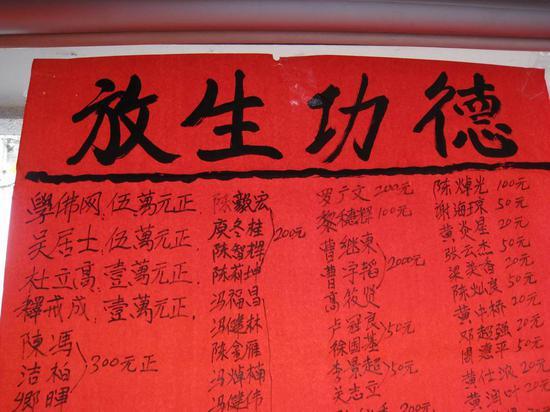 放生功德
學佛网:伍萬元正
吴居士:伍萬元正
杜立高:壹萬元正
釋戒成:壹萬元正
陳馮
洁柏
鄉暉
300元正
陈毅宏
庚冬桂
陈智樨
陈莉坤
200元
冯福昌
冯健林
陈金雁
冯焯楠
冯健伟
罗亍文 200元
黎德樨 100元
曹继東
曹宇韬
高筱贤
2000元
卢冠良
徐国基
50元
李景超
吴志立
50元
陈焯光 100元
谢海琼 50元
黄炎星 20元
张云杰 50元
梁炎香 20元
陈灿良 50元
黄中桥 20元
邓超强 20元
周漫平 50元
黄仕派 20元
黄润叶 20元